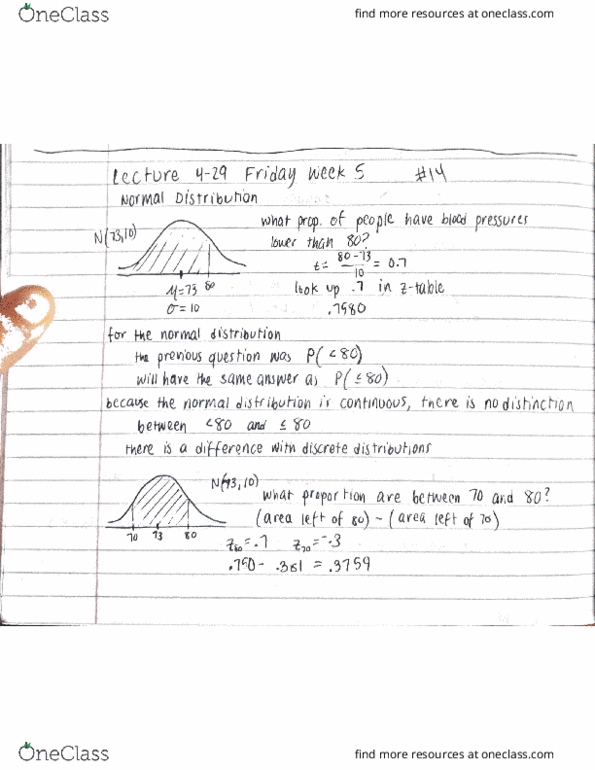 OneClass
find more resources at oneclass.com
Lecture 4-29 Friday Week 5 #14
Normal Distribution
N(73,10)
What prop. of people have blood pressures
lower than 80?
z = 80-73 / 10 = 0.7
μ=73 80
σ=10
look up .7 in z-table
.7580
for the normal distribution
the previous question was P(<80)
will have the same answer as P(≤80)
because the normal distribution is continuous, there is no distinction
between <80 and ≤80
there is a difference with discrete distributions
N(73,10)
What proportion are between 70 and 80?
(area left of 80) - (area left of 70)
70 73 80
z80=.7 z70=-.3
.750- .381 = .3759
OneClass
find more resources at oneclass.com